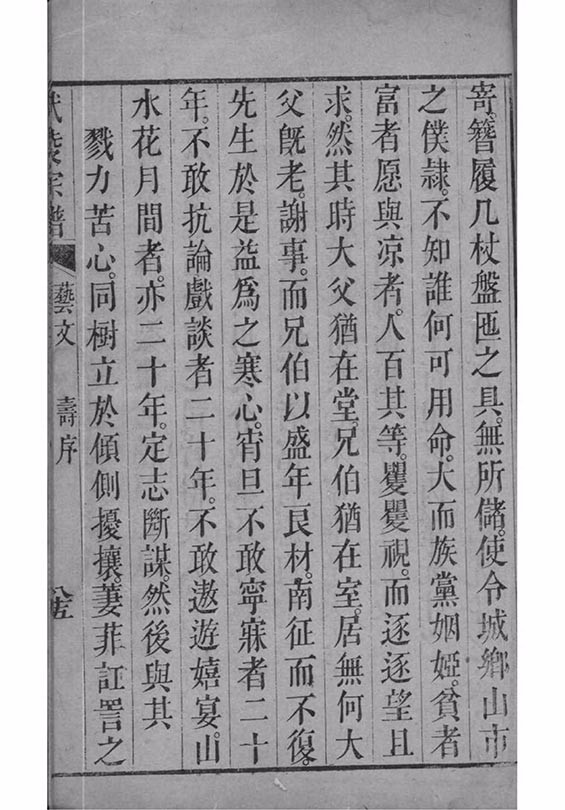 寄。簪履几杖盤匜之具。無所儲。使令城鄉山市
之僕隷。不知誰何可用命。大而族黨姻婭。貧者
富者愿與凉者。人百其等。矍矍視。而逐逐望且
求。然其時大父猶在堂。兄伯猶在室。居無何大
父旣老。謝事。而兄伯以盛年良材。南征而不復。
先生於是益爲之寒心。宵旦不敢寧寐者二十
年。不敢抗論戲談者二十年。不敢遨遊嬉宴。山
水花月間者。亦二十年。定志斷謀。然後與其
戮力苦心。同樹立於傾側擾攘。萋菲訌詈之
宗譜 藝文 壽序 八五